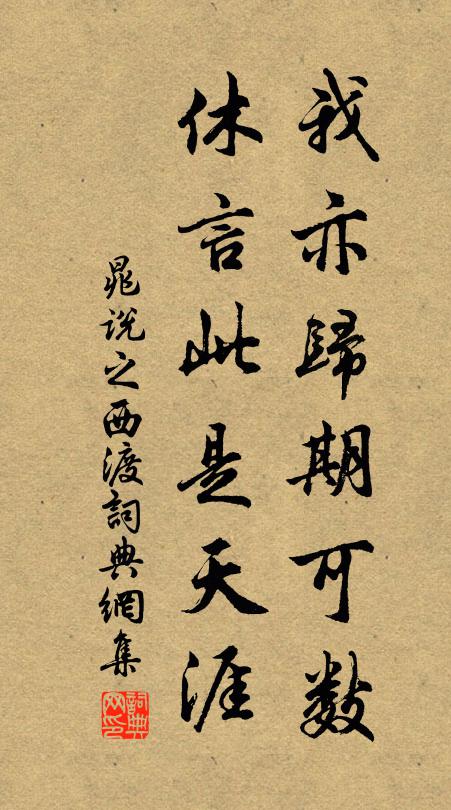 我亦歸期可数
休言此是天涯
晁说之西渡詞典網集
詞典网印